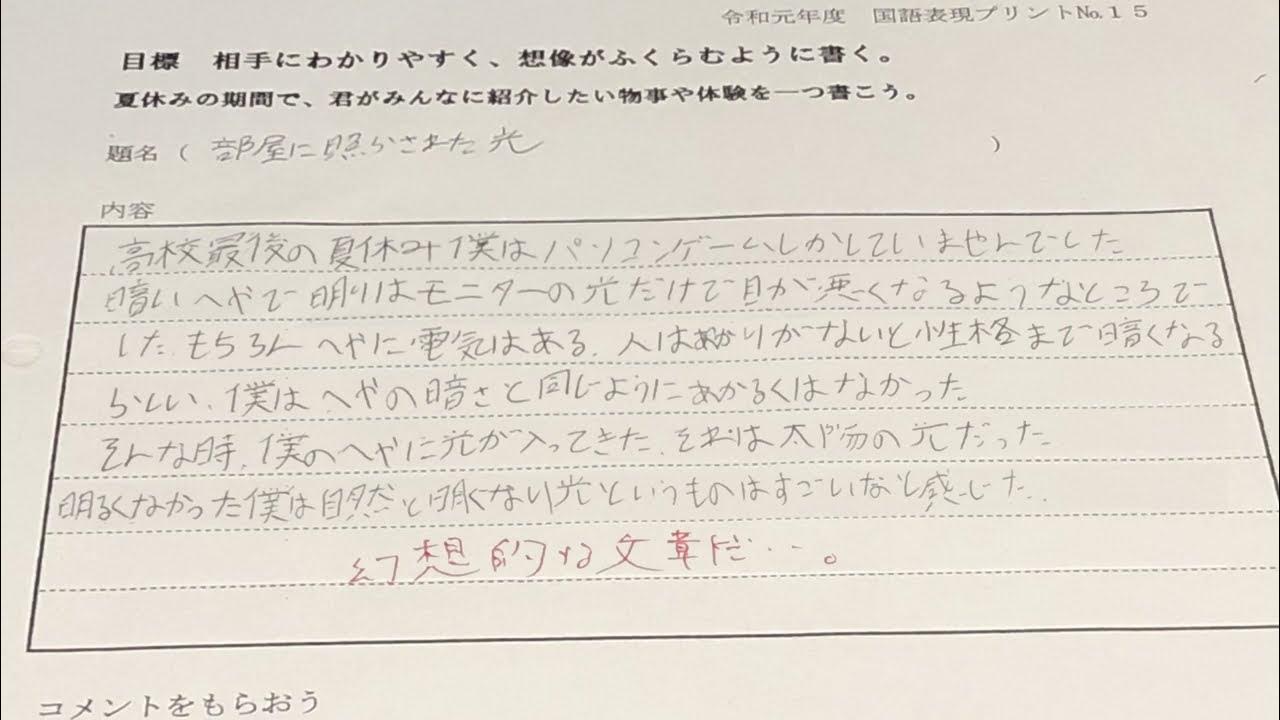 令和元年度　国語表現プリント№１５
目標　相手にわかりやすく、想像がふくらむように書く。
夏休みの期間で、君がみんなに紹介したい物事や体験を一つ書こう。
題名（ 部屋に照らされた光 ）
内容
高校最後の夏休み僕はパソコンゲームしかしていませんでした
暗いへやで明りはモニターの光だけで目が悪くなるようなところで
した、もちろんへやに電気はある、人は明かりがないと性格まで暗くなる
らしい、僕はへやの暗さと同じようにあかるくはなかった
そんな時、僕のへやに光が入ってきた、それは太陽の光だった
明るくなかった僕は自然と明るくなり光というものはすごいなと感じた、
幻想的な文章だ…。
コメントをもらおう